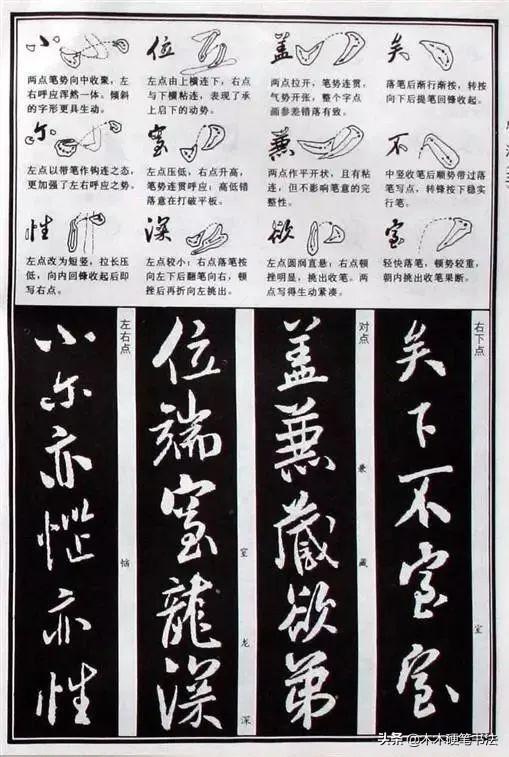 小
两点笔势向中收聚，左
右呼应浑然一体。倾斜
的字形更具生动。
位
左点由上横连下，右点
与下横粘连，表现了承
上启下的动势。
盖
两点拉开，笔势连贯，
气势开张，整个字点
画参差错落有致。
矣
落笔后渐行渐按，转按
向下后提笔回锋收起。
尔
左点以带笔作钩连之态，
更加强了左右呼应之势。
室
左点压低，右点升高，
笔势连贯呼应；高低错
落意在打破平板。
兼
两点作平开状，且有粘
连，但不影响笔意的完
整性。
不
中竖收笔后顺势带过落
笔写点，转锋按下稳实
行笔。
性
左点改为短竖，拉长压
低，向内回锋收起后即
写右点。
深
左点较小；右点落笔按
向左下后翻笔向右，顿
挫后再折向左挑出。
欲
左点圆润直悬；右点顿
挫明显，挑出收笔。两
点写得生动紧凑。
室
轻快落点，顿势较重，
朝内挑出收笔果断。
右下点
室
矣下不室室
对点
兼
藏
盖兼藏欲弟
室
龙
深
位端室龍深
左右点
恼
小尔亦恼亦性
头条 @木木硬笔书法